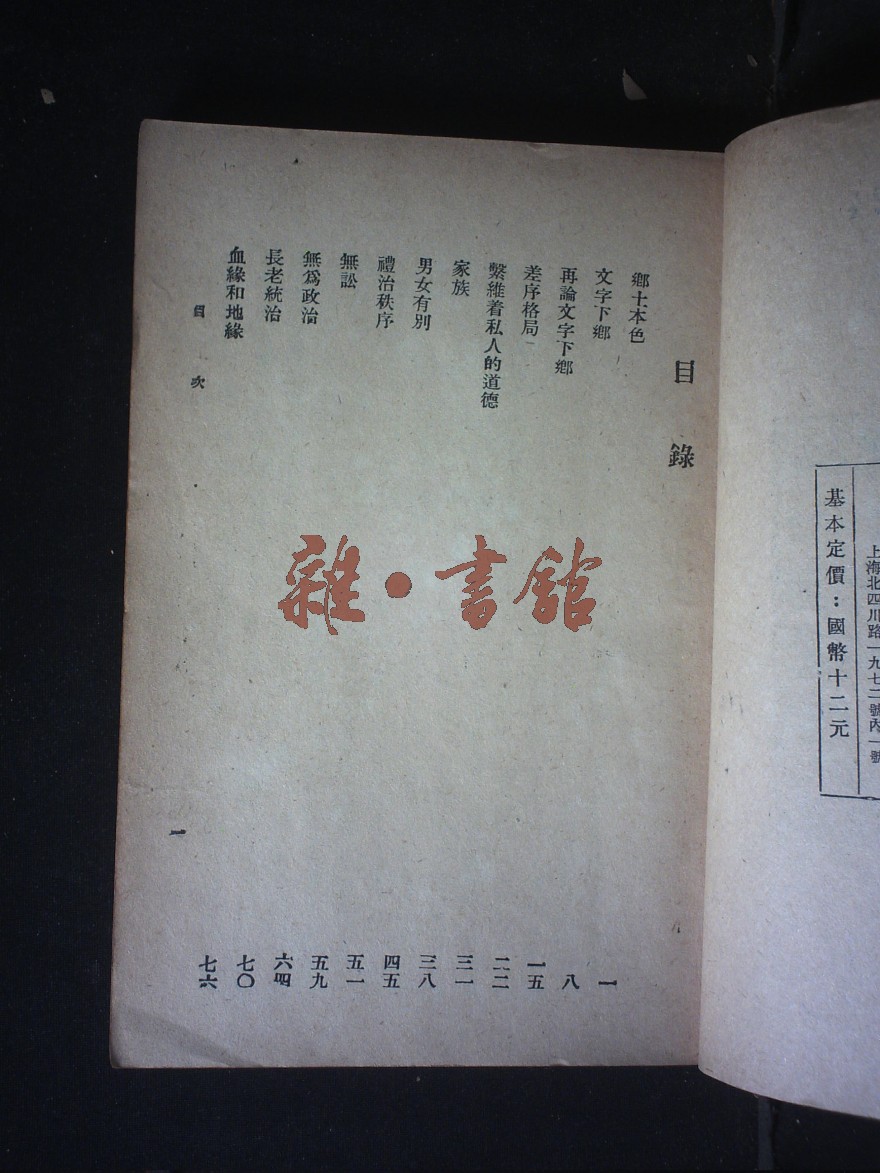 上海北四川路一九七二號內一號
基本定價：國幣十二元
目錄
鄉土本色 一
文字下鄉 八
再論文字下鄉 一五
差序格局 二二
繫維着私人的道德 三一
家族 三八
男女有別 四五
禮治秩序 五一
無訟 五九
無爲政治 六四
長老統治 七〇
血緣和地緣 七六
目次 一
雜·書館